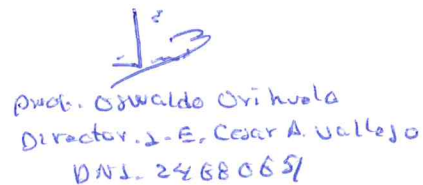 Prof. Oswaldo Orihuela
Director. I. E. Cesar A. Vallejo
DNI. 24680651